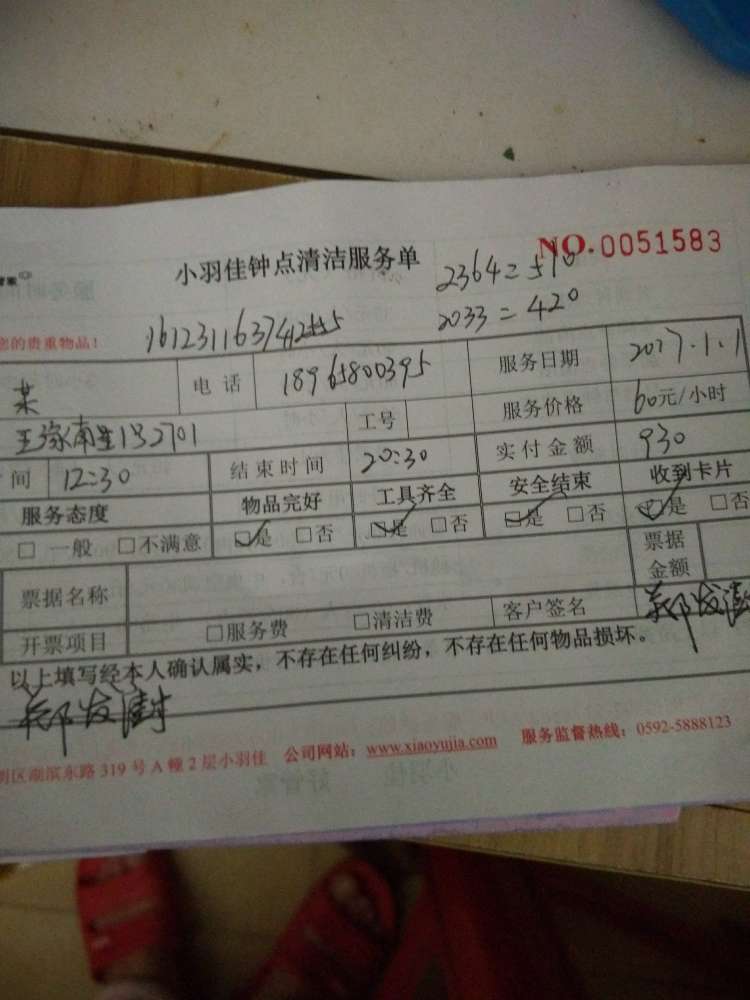 NO.0051583
小羽佳钟点清洁服务单
2364=510
2033=420
您的贵重物品！
电话 18965800395 服务日期 2017.1.1
工号 服务价格 60元/小时
间 12:30 结束时间 20:30 实付金额 930
服务态度 物品完好 工具齐全 安全结束 收到卡片
□ 一般 □不满意 ☑是 □否 ☑是 □否 ☑是 □否 ☑是 □否
票据名称 票据金额
开票项目 □服务费 □清洁费 客户签名
以上填写经本人确认属实，不存在任何纠纷，不存在任何物品损坏。
区湖滨东路 319 号 A 幢 2 层小羽佳 公司网站：www.xiaoyujia.com 服务监督热线：0592-5888123